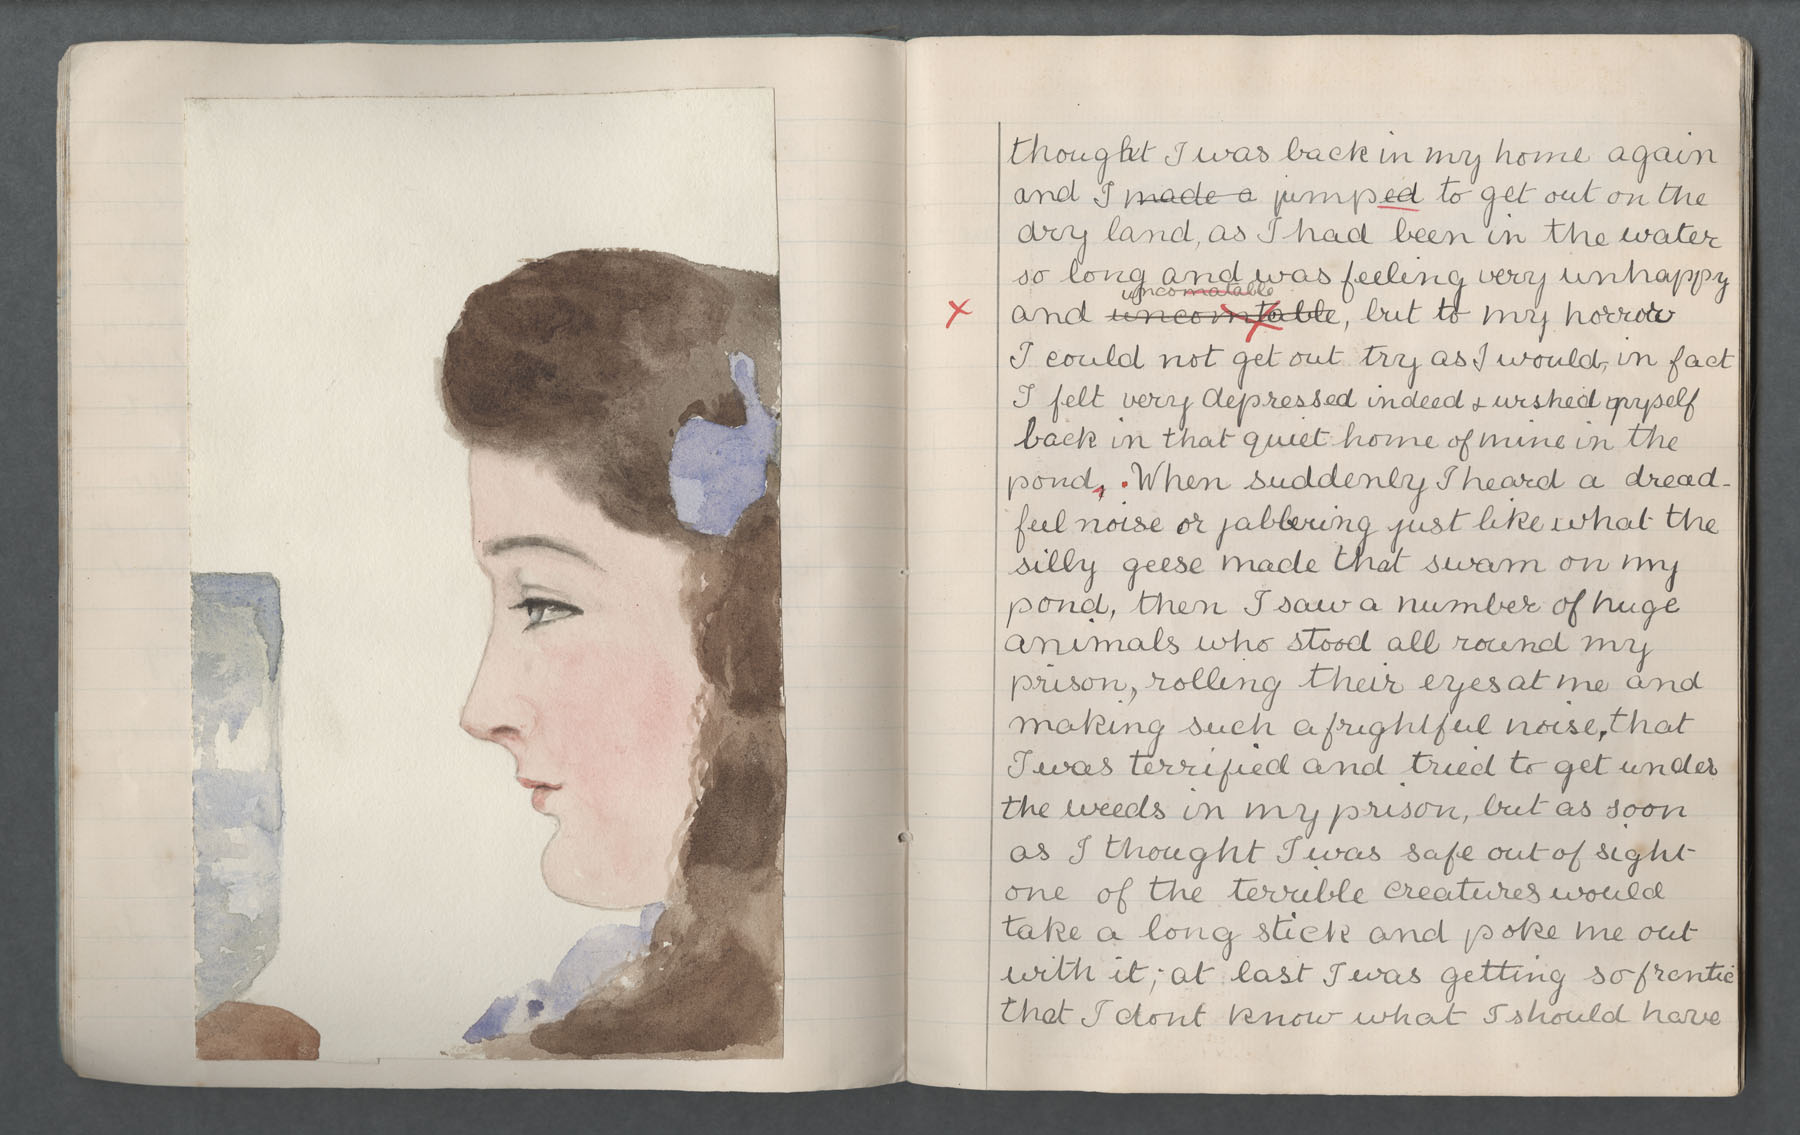 thought I was back in my home again
and I made a jumped to get out on the
dry land, as I had been in the water
so long and was feeling very unhappy
uncomatable
and uncomtable, but to my horrow
I could not get out try as I would, in fact
I felt very depressed indeed & wished myself
back in that quiet home of mine in the
pond, . When suddenly I heard a dread-
ful noise or jabbering just like what the
silly geese made that swam on my
pond, then I saw a number of huge
animals who stood all round my
prison, rolling their eyes at me and
making such a frightful noise, that
I was terrified and tried to get under
the weeds in my prison, but as soon
as I thought I was safe out of sight
one of the terrible creatures would
take a long stick and poke me out
with it; at last I was getting so frentic
that I dont know what I should have